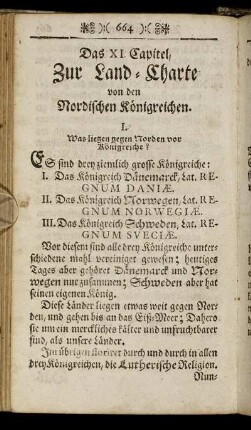 664
Das XI. Capitel,
Zur Land-Charte
von den
Nordischen Königreichen.
I.
Was liegen gegen Norden vor
Königreiche?
ES sind drey ziemlich grosse Königreiche:
I. Das Königreich Dänemarck, Lat. RE-
GNUM DANIÆ.
II. Das Königreich Norwegen, Lat. RE-
GNUM NORWEGIÆ.
III. Das Königreich Schweden, Lat. RE-
GNUM SVECIÆ.
Vor diesem sind alle drey Königreiche unter-
schiedene mahl vereiniget gewesen; heutiges
Tages aber gehöret Dänemarck und Nor-
wegen nur zusammen; Schweden aber hat
seinen eigenen König.
Diese Länder liegen etwas weit gegen Nor-
den, und gehen bis an das Eiß-Meer; Dahero
sie um ein merckliches kälter und unfruchtbarer
sind, als unsere Länder.
Im übrigen floriret durch und durch in allen
drey Königreichen, die Lutherische Religion.
Nun-